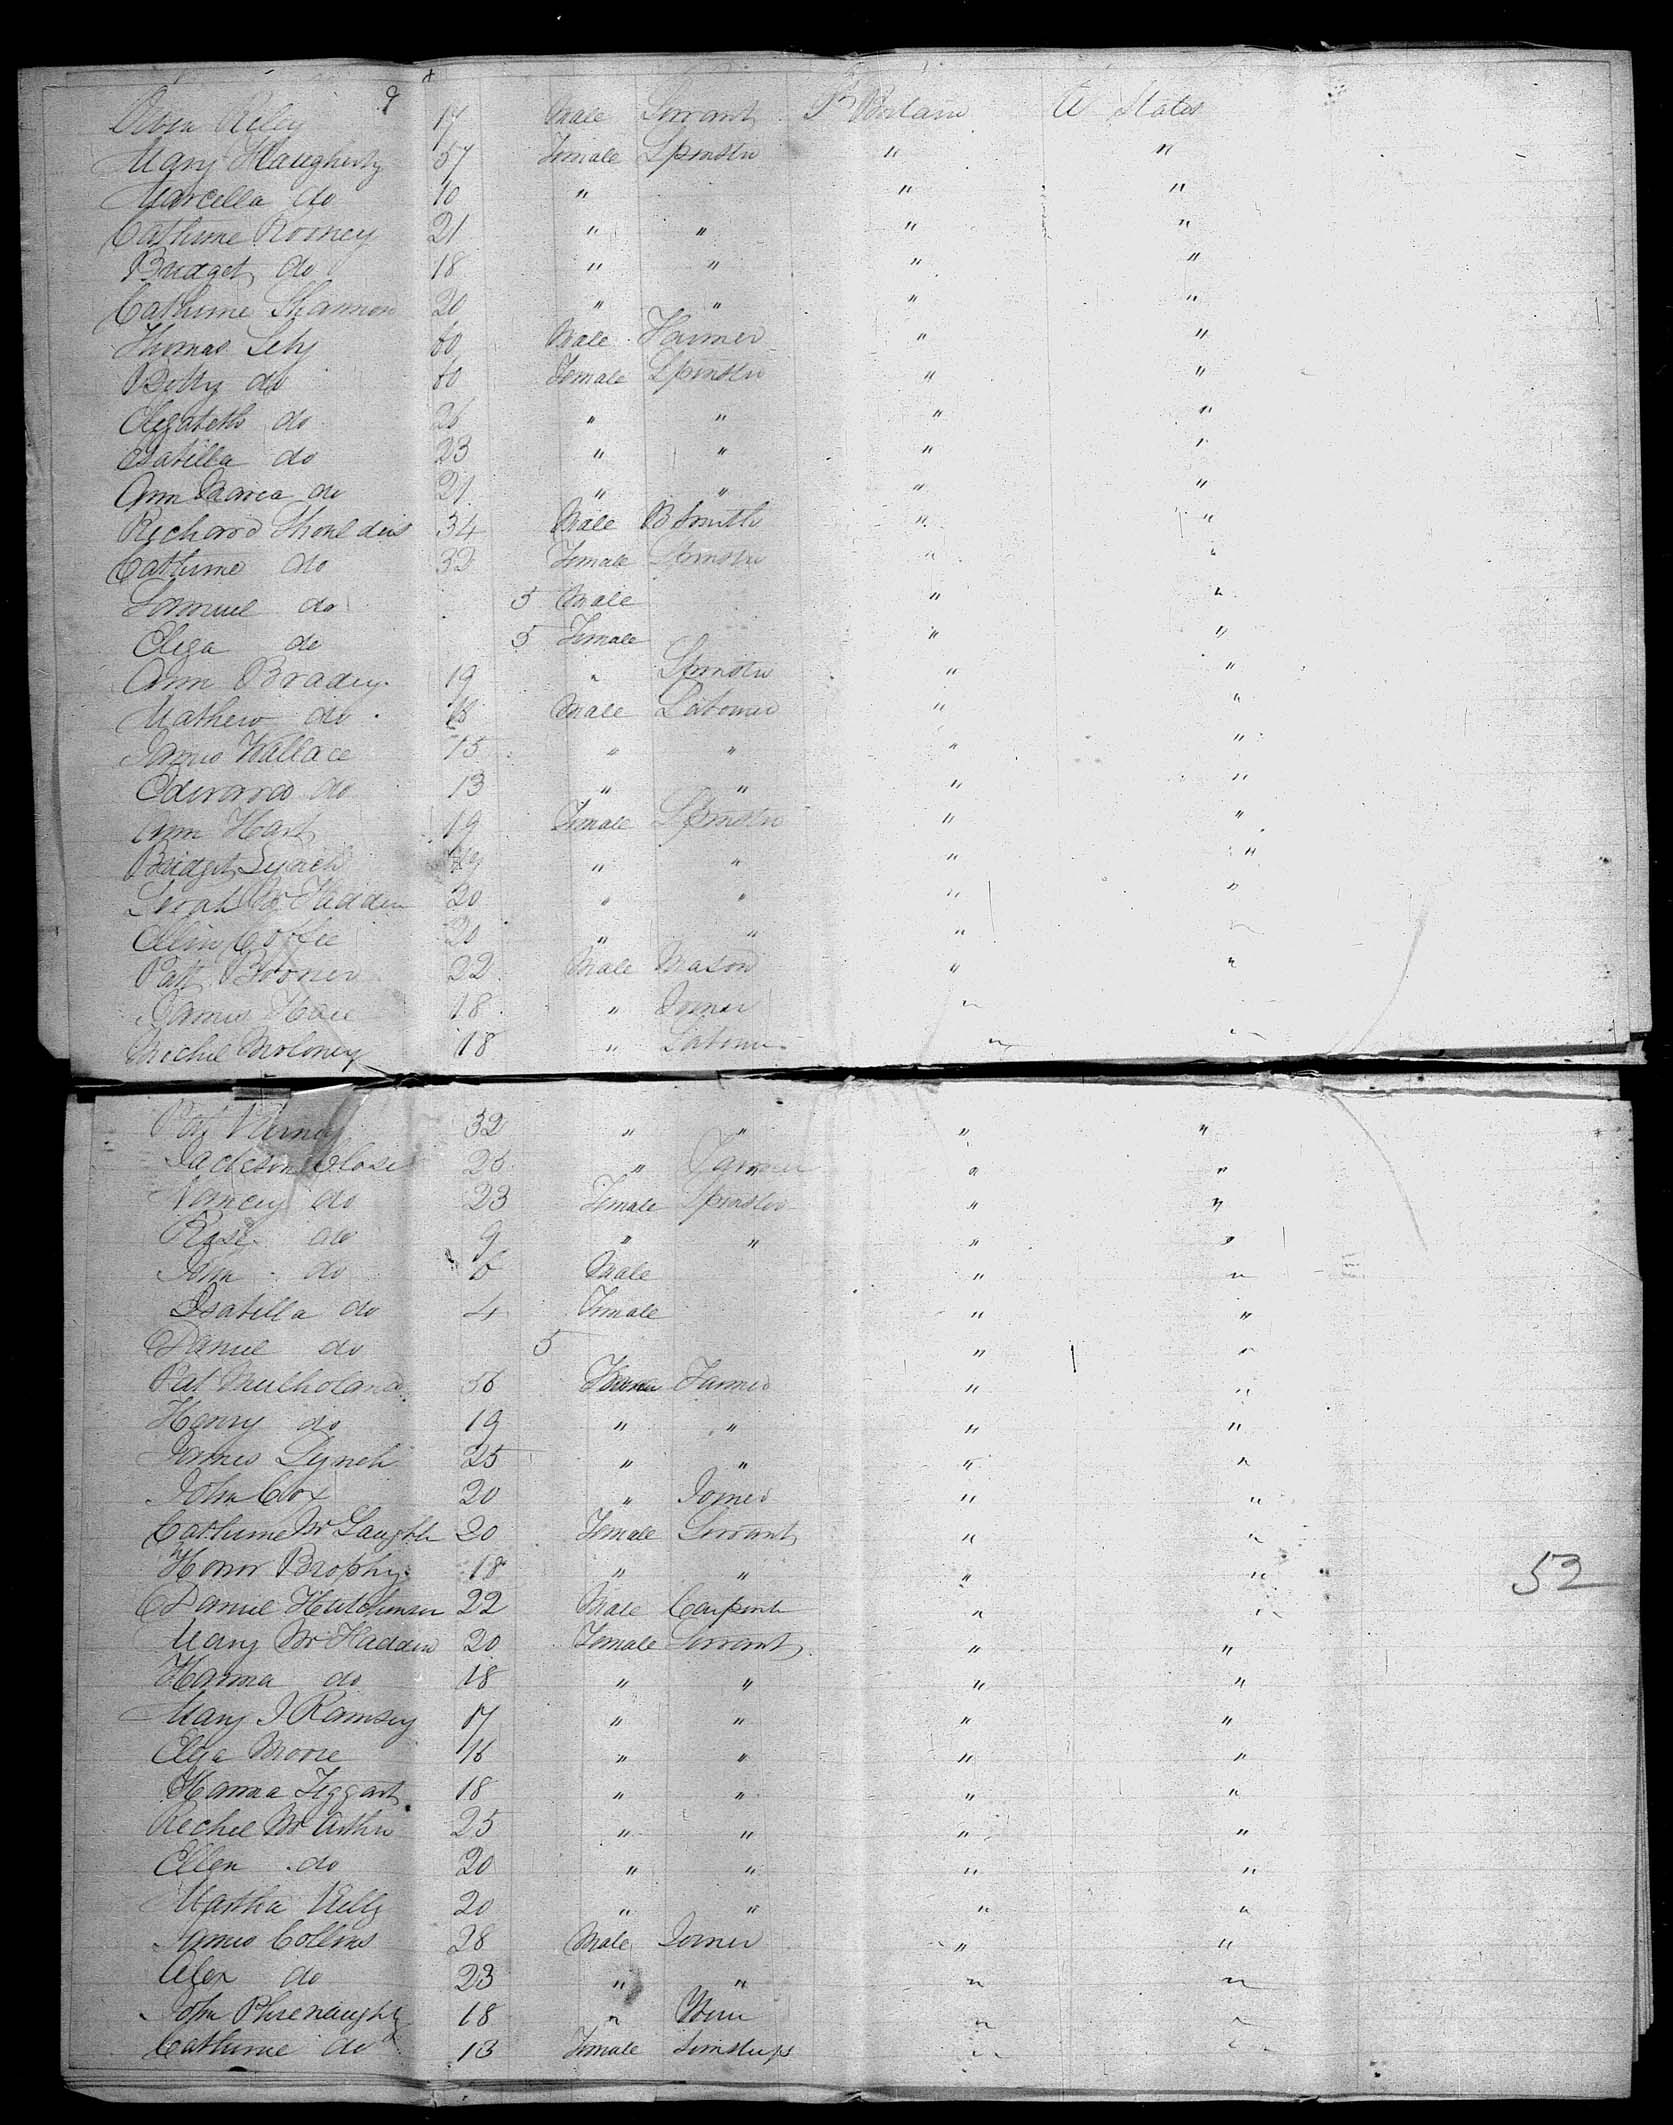 9
Owen Riley 17 Male Servant Gt Britain U States
Mary Haugherty 57 Female Spinster " "
Marcella do 10 " " "
Catherine Rooney 21 " " " "
Bridget do 18 " " " "
Catherine Shannon 20 " " " "
Thomas 60 Male Farmer " "
Betty do 60 Female Spinster " "
Elizabeth do 26 " " " "
Isabella do 23 " " " "
Ann Maria do 21 " " " "
Richard Shoulders 34 Male B Smith " "
Catherine do 32 Female Spinster " "
Samuel do 5 Male " "
Eliza do 5 Female " "
Ann Brady 19 " Spinster " "
Mathew do 18 Male Labourer " "
James Wallace 15 " " " "
Edward do 13 " " " "
Ann Hart 19 Female Spinster " "
Bridget Lynch 19 " " " "
Sarah McFadden 20 " " " "
Ellen Coffee 20 " " " "
Patt 22 Male Mason " "
James Hare 18 " Joiner " "
Michel Moloney 18 " Labourer " "
Pat 32 " " " "
Jackson Close 25 " Farmer " "
Nancy do 23 Female Spinster " "
Rose do 9 " " " "
John do 6 Male " "
Isabella do 4 Female " "
Daniel do 5 " "
Pat Mulholand 56 Farmer " "
Henry do 19 " " " "
James Lynch 25 " " " "
John Cox 20 " Joiner " "
Catherine McLaughlin 20 Female Servant " "
Honor Brophy 18 " " " "
52
Daniel Hutchinson 22 Male Carpenter " "
Mary McFadden 20 Female Servant " "
Hanna do 18 " " " "
Mary J Ramsey 17 " " " "
Eliza Moore 16 " " " "
Hanna Teggart 18 " " " "
Rechel McArthur 25 " " " "
Ellen do 20 " " " "
Martha Kelly 20 " " " "
James Collins 28 Male Joiner " "
Alex do 23 " " " "
John 18 " " "
Catherine do 13 Female " "